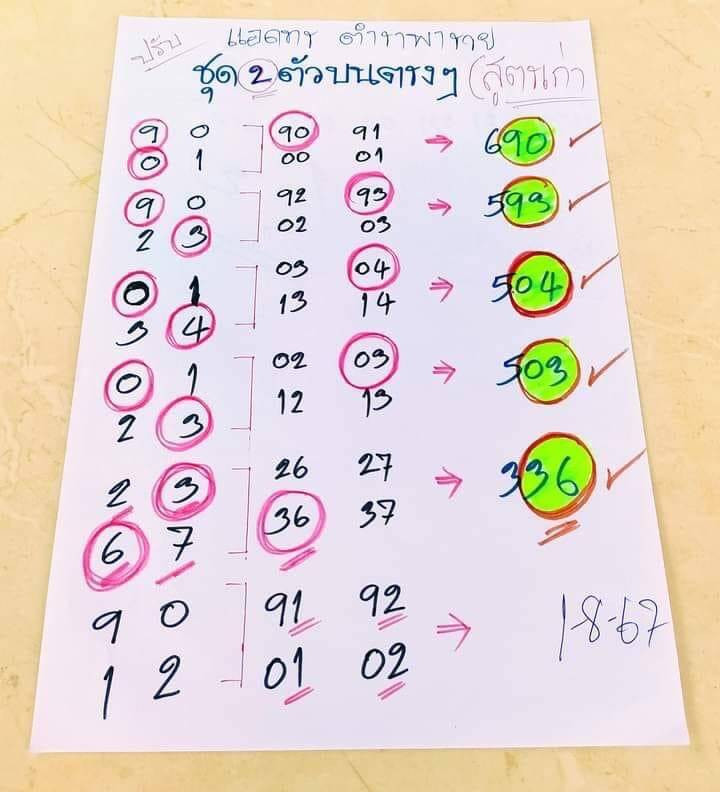 ปรับ แอดทร ตำราพารวย
ชุด 2 ตัวบนตรงๆ (สูตรเก่า
9 0 90 91 → 690
0 1 00 01
9 0 92 93 → 593
2 3 02 03
0 1 03 04 → 504
3 4 13 14
0 1 02 03 → 503
2 3 12 13
2 3 26 27 → 336
6 7 36 37
9 0 91 92 → 1-8-67
1 2 01 02